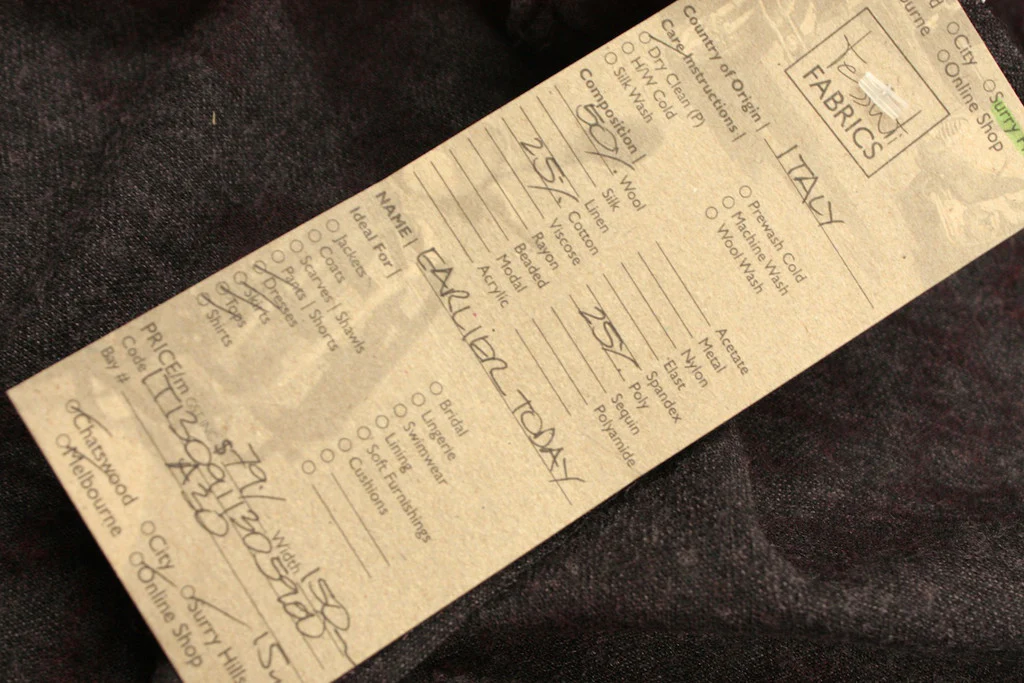 Tessuti
FABRICS
City
Surry H
Online Shop
Country of Origin | ITALY
Care Instructions |
Dry Clean (P)
H/W Cold
Silk Wash
Prewash Cold
Machine Wash
Wool Wash
Composition |
50% Wool
Silk
Linen
25% Cotton
Viscose
Rayon
Beaded
Modal
Acrylic
Acetate
Metal
Nylon
Elast
Spandex
25% Poly
Sequin
Polyamide
NAME | EARLIER TODAY
Ideal For |
Jackets
Coats
Scarves | Shawls
Pants | Shorts
Dresses
Skirts
Tops
Shirts
Bridal
Lingerie
Swimwear
Lining
Soft Furnishings
Cushions
PRICE/m $79/ Width 150
Code
Bay # A30
Chatswood
Melbourne
City
Surry Hills 15
Online Shop